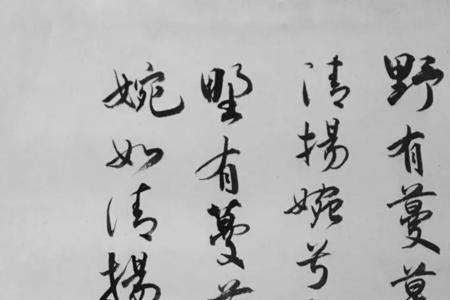 野有蔓草
清揚婉兮
野有蔓
婉如清揚